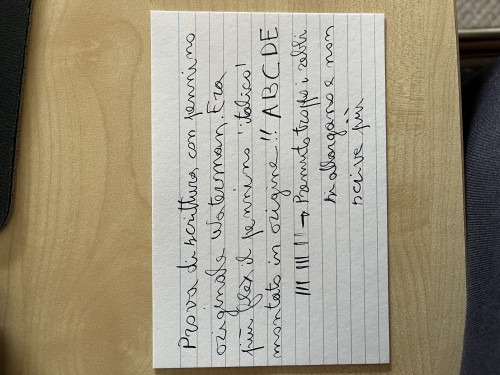 Prova di scrittura con pennino
originale Waterman. Era
più flex il pennino "italico"
montato in origine!! ABCDE
III III II → Premuto troppo i rebbi
si allargano e non
scrive più